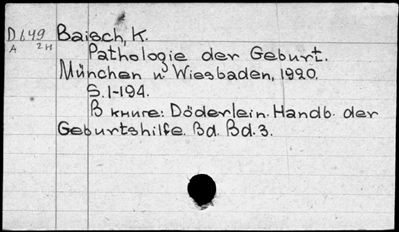 D649 Baisch, K.
A 2H Pathologie der Geburt.
München u Wiesbaden, 1920.
S. 1-194.
В книге: Döderlein. Handb. der
Geburtshilfe. Bd. Bd. 3.